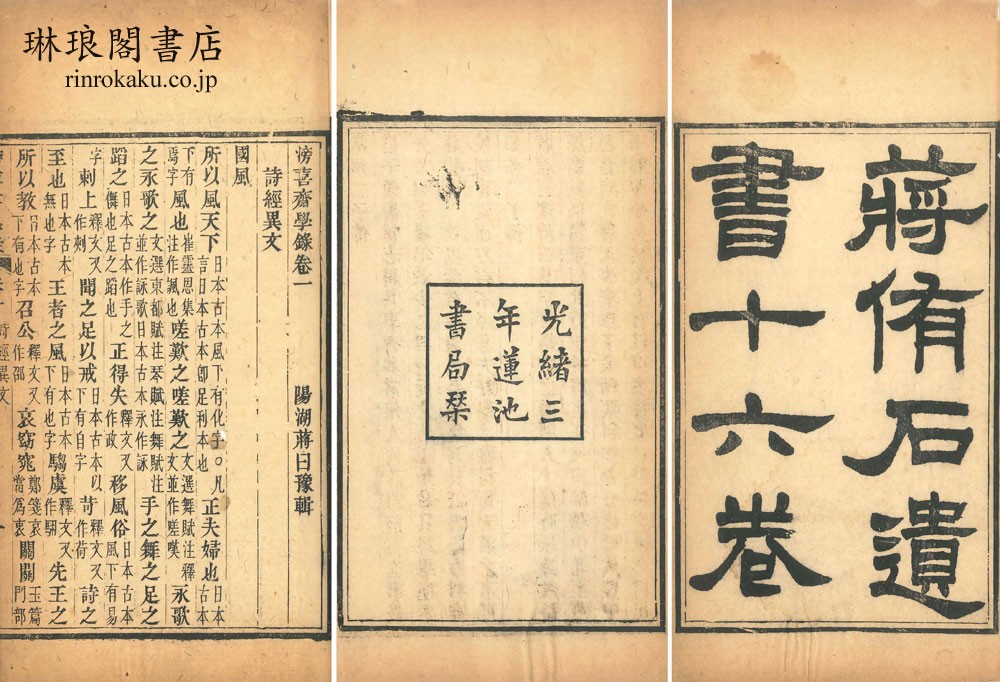 琳琅閣書店
rinrokaku.co.jp
蔣侑石遺
書十六卷
光緒三
年蓮池
書局栞
滂喜齋學錄卷一　陽湖蔣曰豫輯
詩經異文
國風
所以風天下日本古本風下有化字○凡言日本古本卽足利本也正夫婦也日本古本
下有焉字風也崔靈恩集注作諷也嗟歎之嗟歎之文選舞賦注釋文並作嗟嘆永歌
之永歌之文選東都賦注琴賦注舞賦注並作詠歌日本古本永作詠手之舞之足之
蹈之日本古本作手之儛也足之蹈也正得失釋文又作政移風俗日本古本風下有易
字刺上釋文又作刾聞之足以戒日本古本以下有自字苛釋文又作荷詩之
至也日本古本無也字王者之風日本古本下有也字騶虞釋文又作先王之
所以教日本古本下有也字召公釋文又作邵哀窈窕鄭箋哀當爲衷關關玉篇門部
詩經異文